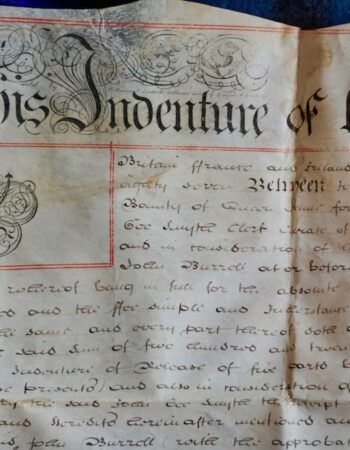 his Indenture of
Britain ffrance and Ireland
Eighty Seven Between
Bounty of Queen Anne for
Gee Smyth Clerk Curate of
and in consideration of
John Burrell at or before
whereof being in full for the absolute
and the ffee simple and Inheritance
the same and every part thereof both
said Sum of five hundred and
Indenture of Release of five parts
these presents) and also in consideration of
the said John Gee Smyth
and heredits hereinafter mentioned and
John Burrell (with the approbat